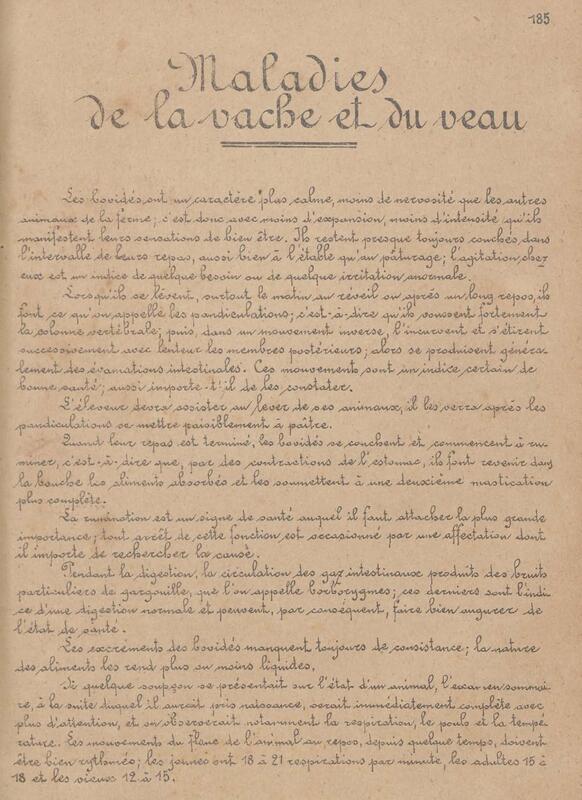 185
Maladies
de la vache et du veau
Les bovidés ont un caractère plus calme, moins de nervosité que les autres
animaux de la ferme; c'est donc avec moins d'expansion, moins d'intensité qu'ils
manifestent leurs sensations de bien être. Ils restent presque toujours couchés dans
l'intervalle de leurs repas, aussi bien à l'étable qu'au pâturage; l'agitation chez
eux est un indice de quelque besoin ou de quelque irritation anormale.
Lorsqu'ils se lèvent, surtout le matin au réveil ou après un long repos, ils
font ce qu'on appelle les pandiculations; c'est-à-dire qu'ils voussent fortement
la colonne vertébrale; puis, dans un mouvement inverse, l'incurvent et s'étirent
successivement avec lenteur les membres postérieurs; alors se produisent généra-
lement des évamations intestinales. Ces mouvements sont un indice certain de
bonne santé; aussi importe-t-il de les constater.
L'éleveur devra assister au lever de ses animaux, il les verra après les
pandiculations se mettre paisiblement à paître.
Quand leur repas est terminé, les bovidés se couchent et commencent à ru-
miner, c'est-à-dire que, par des contractions de l'estomac, ils font revenir dans
la bouche les aliments absorbés et les soumettent à une deuxième mastication
plus complète.
La rumination est un signe de santé auquel il faut attacher la plus grande
importance; tout arrêt de cette fonction est occasionné par une affectation dont
il importe de rechercher la cause.
Pendant la digestion, la circulation des gaz intestinaux produits des bruits
particuliers de gargouille, que l'on appelle borborygmes; ces derniers sont l'indi-
ce d'une digestion normale et peuvent, par conséquent, faire bien augurer de
l'état de santé.
Les excréments des bovidés manquent toujours de consistance; la nature
des aliments les rend plus ou moins liquides.
Si quelque soupçon se présentait sur l'état d'un animal, l'examen sommai-
re, à la suite duquel il aurait pris naissance, serait immédiatement complète avec
plus d'attention, et on observerait notamment la respiration, le pouls et la tempé-
rature. Les mouvements du flanc de l'animal au repos, depuis quelque temps, doivent
être bien rythmés; les jeunes ont 18 à 21 respirations par minute, les adultes 15 à
18 et les vieux 12 à 15.